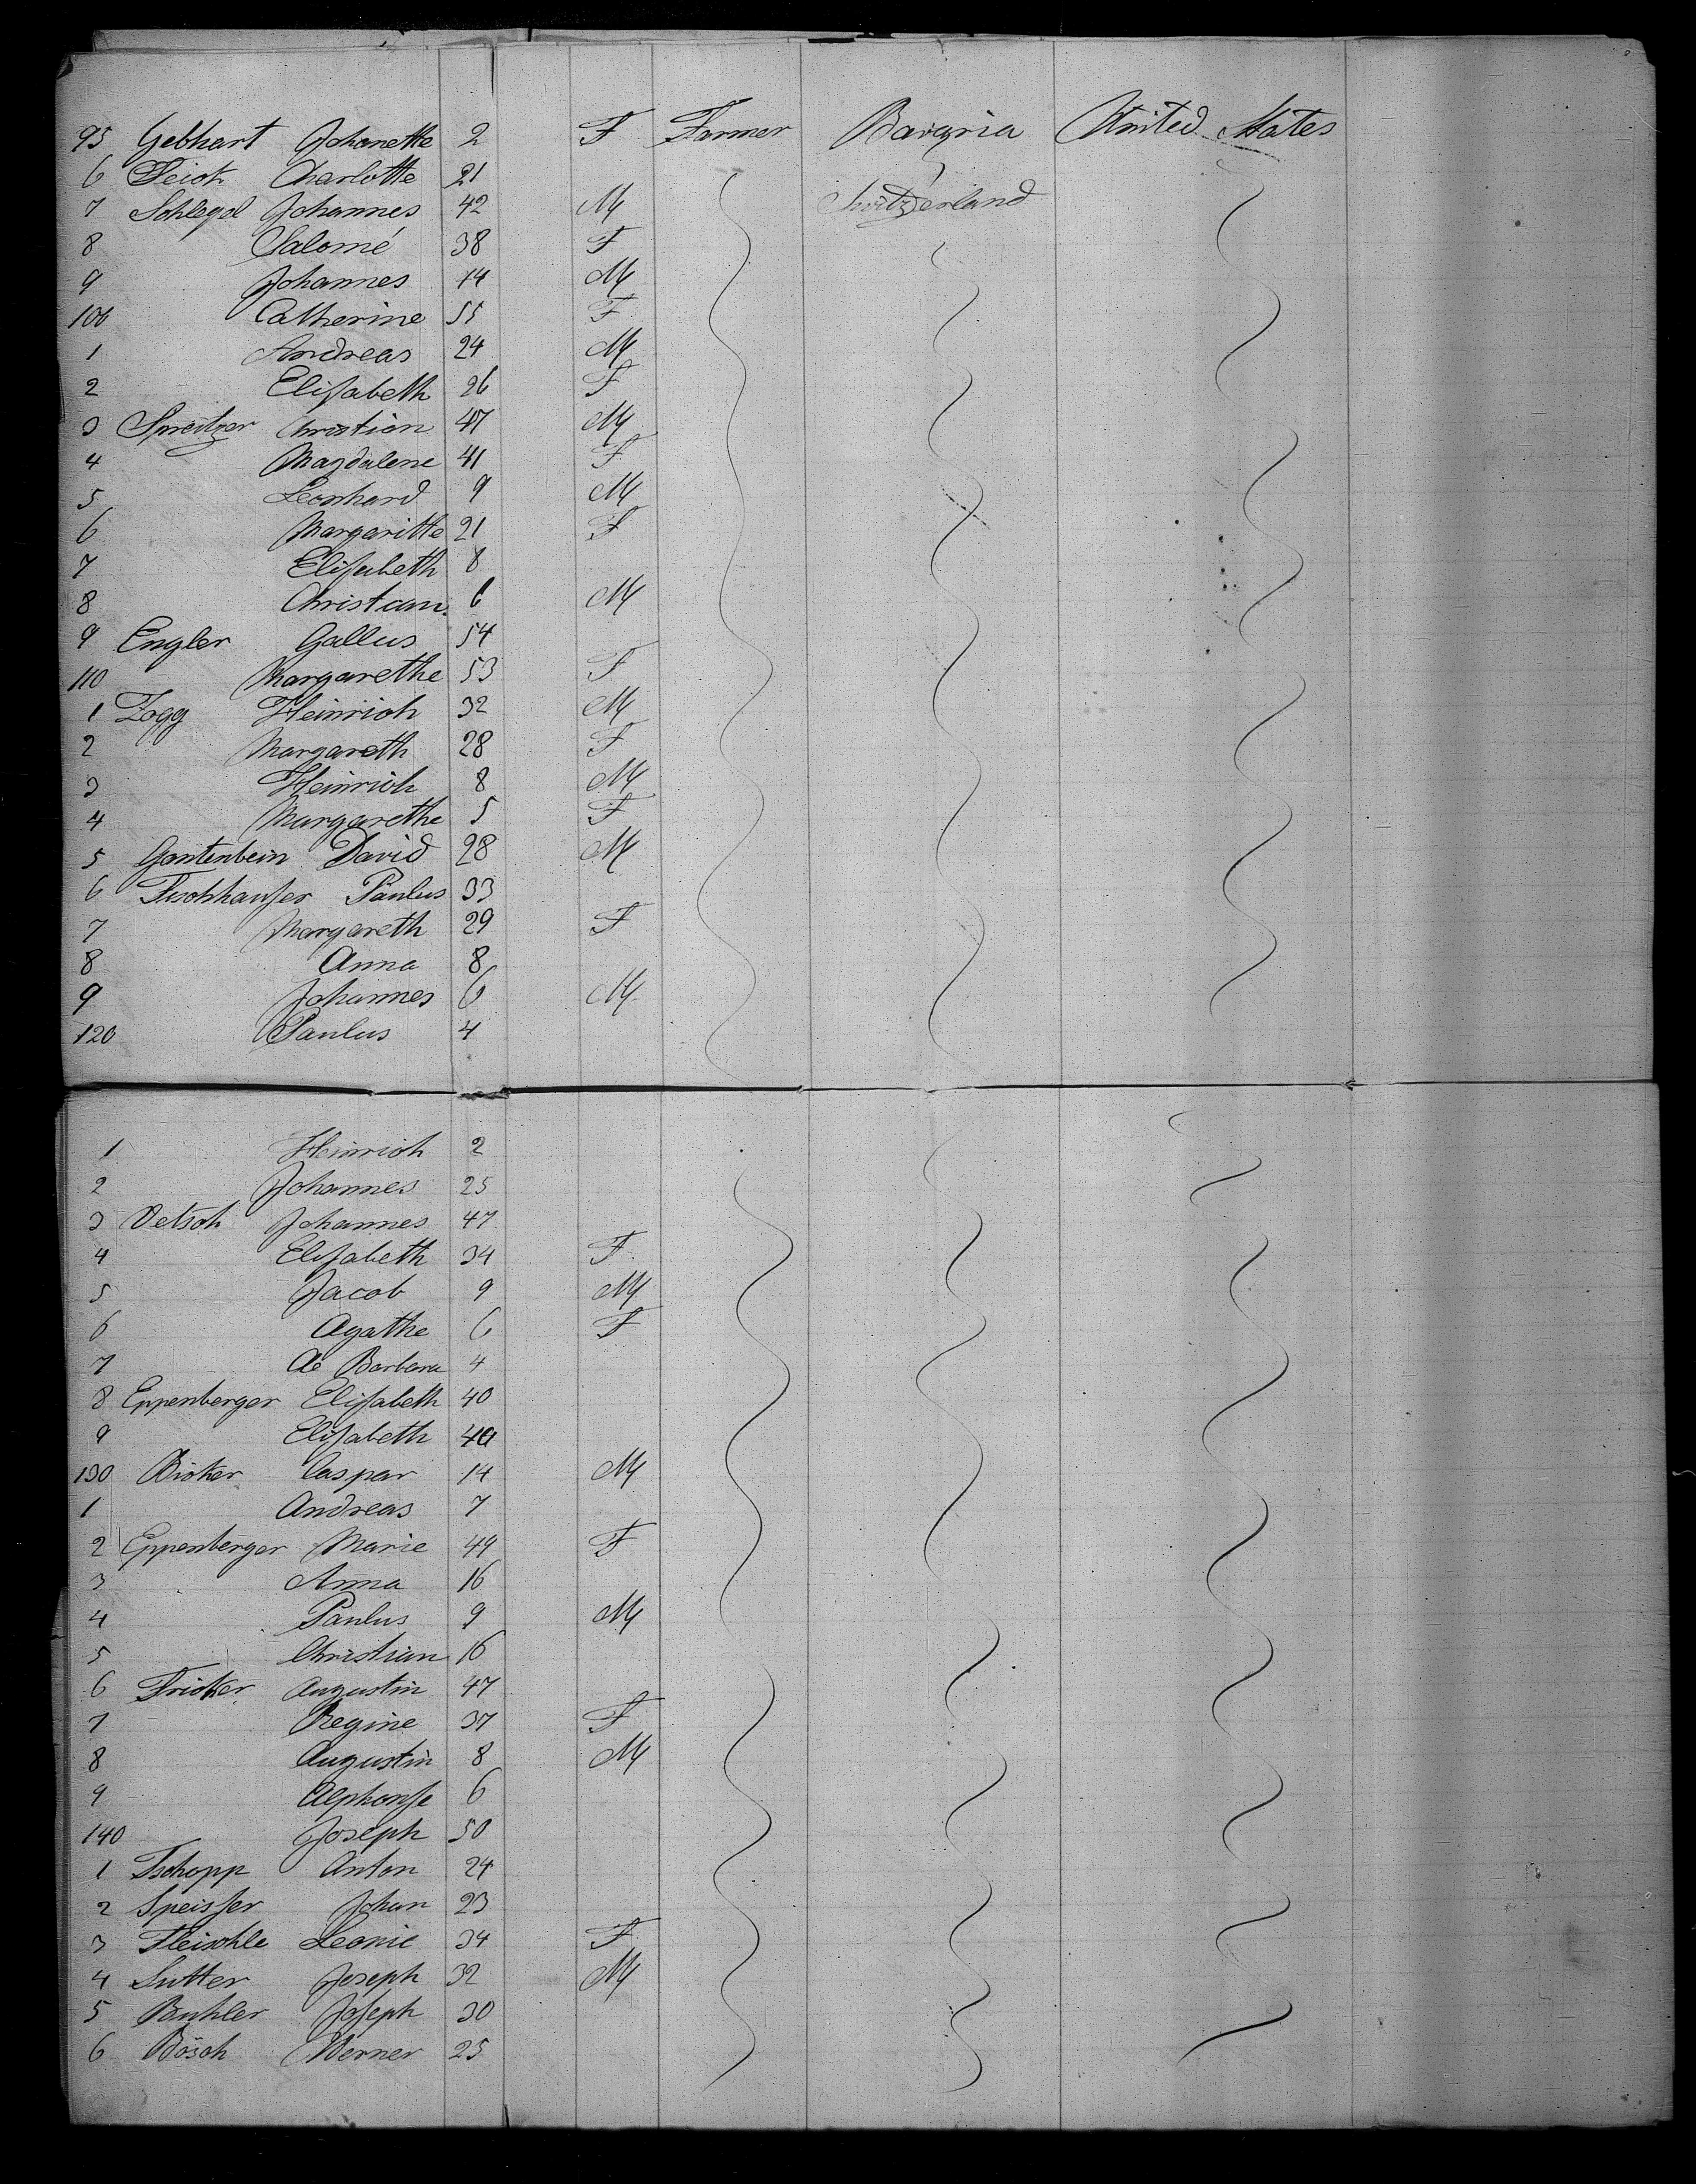 95 Gebhart Johanette 2 F Farmer Bavaria United States
6 Feick Charlotte 21
7 Schlegel Johannes 42 M Switzerland
8 Salomé 38 F
9 Johannes 14 M
100 Catherine 55 F
1 Andreas 24 M
2 Elisabeth 26 F
3 Spreitzer Christian 47 M
4 Magdalene 41 F
5 Leonhard 9 M
6 Margaritte 21 F
7 Elisabeth 8
8 Christian 6 M
9 Engler Gallus 54
110 Margarethe 53 F
1 Zogg Heinrich 32 M
2 Margareth 28 F
3 Heinrich 8 M
4 Margarethe 5 F
5 Gantenbein David 28 M
6 Tischhauser Paulus 33
7 Margareth 29 F
8 Anna 8
9 Johannes 6 M
120 Paulus 4
1 Heinrich 2
2 Johannes 25
3 Vetsch Johannes 47
4 Elisabeth 34 F
5 Jacob 9 M
6 Agathe 6 F
7 Barbara 4
8 Eppenberger Elisabeth 40
9 Elisabeth
130 Caspar 14 M
1 Andreas 7
2 Eppenberger Marie 49 F
3 Anna 16
4 Paulus 9 M
5 Christian 16
6 Fricker Augustin 47
7 Regine 37 F
8 Augustin 8 M
9 Alphonse 6
140 Joseph 50
1 Tschopp Anton 24
2 Speisser Johan 23
3 Fleischle Leonie 34 F
4 Sutter Joseph 32 M
5 Buhler Joseph 30
6 Bösch Werner 25